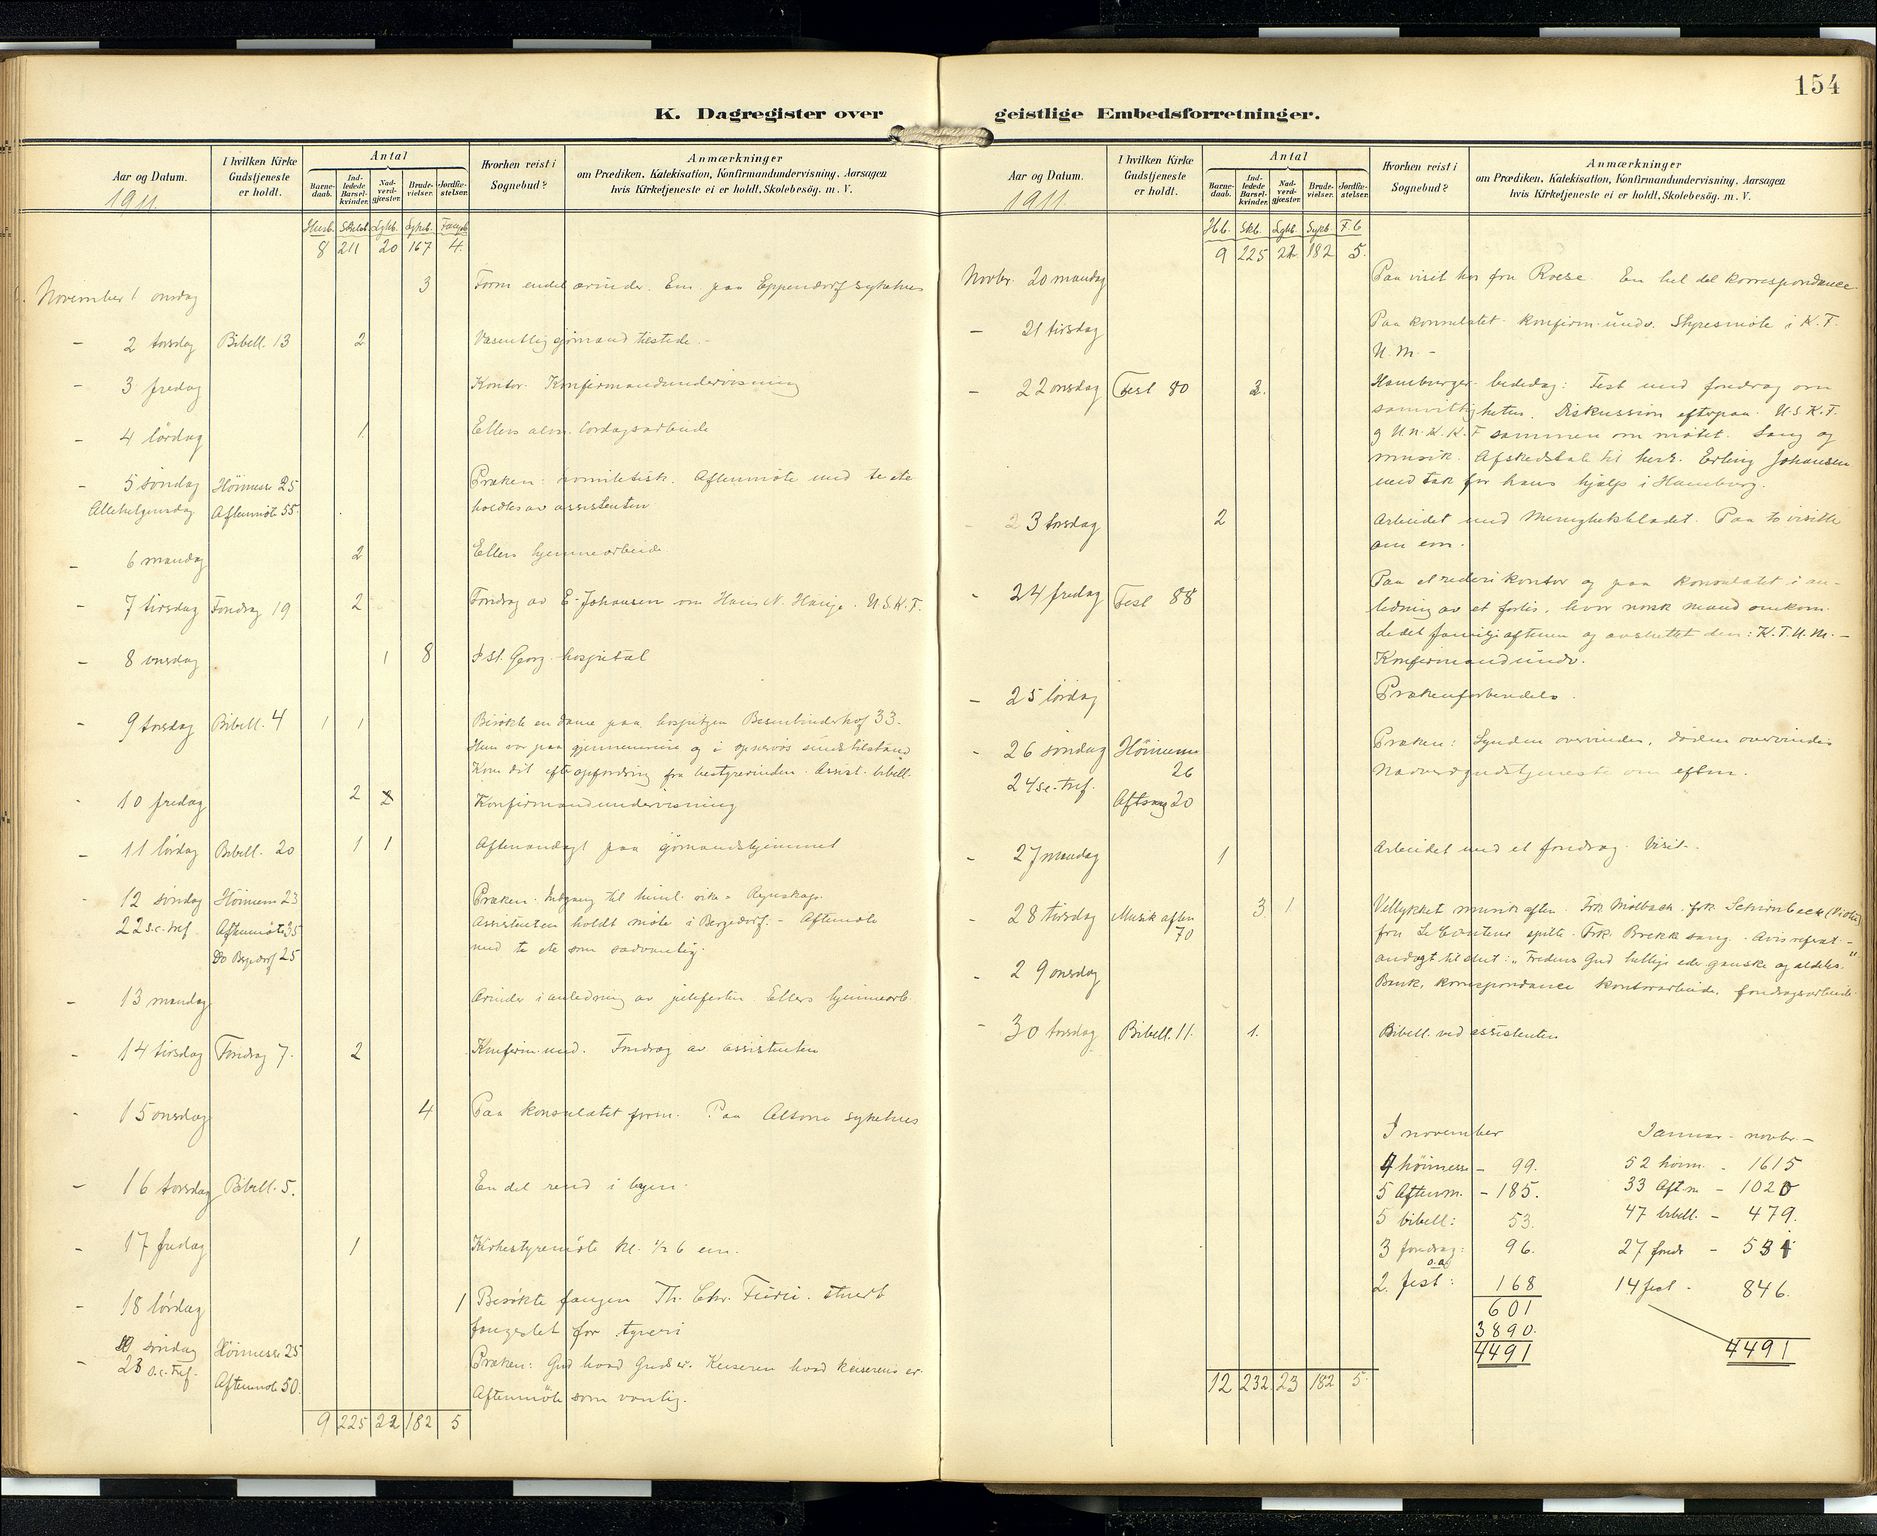 154
K. Dagregister over geistlige Embedsforretninger.
Aar og Datum.
1911
I hvilken Kirke Gudstjeneste er holdt.
Antal
Barnedaab.
Indledede Barselkvinder.
Nadverdgjæster.
Brudevielser.
Jordfæstelser.
Hvorhen reist i Sognebud?
Anmærkninger
om Prædiken, Katekisation, Konfirmandundervisning, Aarsagen
hvis Kirketjeneste ei er holdt, Skolebesøg. m. V.
Husb. Skibsb. Lghb. Sykeb. Fangeb.
8 211 20 167 4.
November 1 onsdag 3 Form endel ærinder. Em. paa Eppendorf sykehus
- 2 torsdag Bibell. 13 2 Væsentlig sjømænd tilstede. -
- 3 fredag Kontor. Konfirmandundervisning
- 4 lördag 1. Ellers alm. lördagsarbeide
- 5 söndag Höimesse 25 Præken: homiletisk. Aftenmöte med te etc
Allehelgensdag Aftenmöte 55. holdtes av assistenten
- 6 mandag 2 Ellers hjemmearbeide.
- 7 tirsdag Foredrag 19 2 Foredrag av E. Johansen om Hans N. Hauge. U.S.K.F.
- 8 onsdag 1 8 I St. Georg hospital
- 9 torsdag Bibell. 4 1 1 Besökte en dame paa hospitzen Besenbinderhof 33.
Hun var paa gjennemreise og i opnervøs sindstilstand
Kom dit efter opfordring fra bestyrerinden. Assist. bibell.
- 10 fredag 2 2 Konfirmandundervisning
- 11 lördag Bibell. 20 1 1 Aftenandagt paa sjömandshjemmet
- 12 söndag Höimesse 23 Præken. Indgang til himl. rike = Regnskap.
22 s.e. tref. Aftenmöte 35 Assistenten holdt möte i Bergedorf. - Aftenmöte
Do Bergedorf 25 med te etc som sædvanlig.
- 13 mandag Ærinder i anledning av julefesten. Ellers hjemmearb.
- 14 tirsdag Foredrag 7. 2 Konfirm. und. Foredrag av assistenten
- 15 onsdag 4 Paa konsulatet form. Paa Altona sykehus
- 16 torsdag Bibell. 5. En del rend i byen.
- 17 fredag 1 Kirkestyremöte kl. ½ 6 em.
- 18 lördag 1 Besökte fangen Th. Chr. Furu. stuert
fængslet for tyveri
söndag Höimesse 25 Præken: Gud hvad Guds er. Keiseren hvad keiserens er.
- 23 s.e. Tref. Aftenmöte 50. Aftenmöte som vanlig.
9 225 22 182 5
Aar og Datum.
1911
I hvilken Kirke Gudstjeneste er holdt.
Antal
Barnedaab.
Indledede Barselkvinder.
Nadverdgjæster.
Brudevielser.
Jordfæstelser.
Hvorhen reist i Sognebud?
Anmærkninger
om Prædiken, Katekisation, Konfirmandundervisning, Aarsagen
hvis Kirketjeneste ei er holdt, Skolebesøg. m. V.
Hb. Skb. Lghb. Sykb. F.b
9 225 22 182 5.
Novbr. 20 mandag Paa visit hos fru Roese. En hel del korrespondance.
- 21 tirsdag Paa konsulatet. Konfirm. undv. Styresmöte i K.F.
U.M. -
- 22 onsdag Fest 80 3. Hamburger-bededag: Fest med foredrag om
samvittigheten. Diskussion efterpaa. U.S.K.F.
og U.n.K.K.F sammen om mötet. Sang og
musik. Afskedstale til herr. Erling Johansen
med tak for hans hjælp i Hamburg.
- 23 torsdag 2 Arbeidet med Menighetsbladet. Paa to visitter
om em.
- 24 fredag Fest 88 Paa et rederikontor og paa konsulatet i an-
ledning av et forlis, hvor norsk mand omkom.
Ledet familjeaftenen og avsluttet den: K.F.U.M. -
Konfirmandundv.
- 25 lördag Prækenforberedelse.
- 26 söndag Höimesse 26 Præken: Synden overvindes, döden overvindes
24 s.e. tref. Aftsang 20 Nadverdgudstjeneste om eftm.
- 27 mandag 1 Arbeidet med et foredrag. Visit.
- 28 tirsdag Musikaften 70 3 1 Vellykket musikaften. Frk. Molbach, frk. Schirnbeck (Violin)
fru Le Couteur spilte. Frk. Brekke sang. Avisreferat. -
andagt til slut: "Fredens Gud hellige eder ganske og aldeles."
- 29 onsdag Bank, korrespondance kontorarbeide, foredragsarbeide.
- 30 torsdag Bibell. 11. 1. Bibell. ved assistenten
I november Januar - novbr -
4 höimesse - 99. 52 höim. - 1615
5 Aftenm. - 185. 33 Aft.m - 1020
5 bibell: 53. 47 bibell. - 479.
3 foredrag: o.a. 96. 27 foredr - 531
2. fest: 168 14 fest - 846.
601
3890.
4491 4491
12 232 23 182 5.